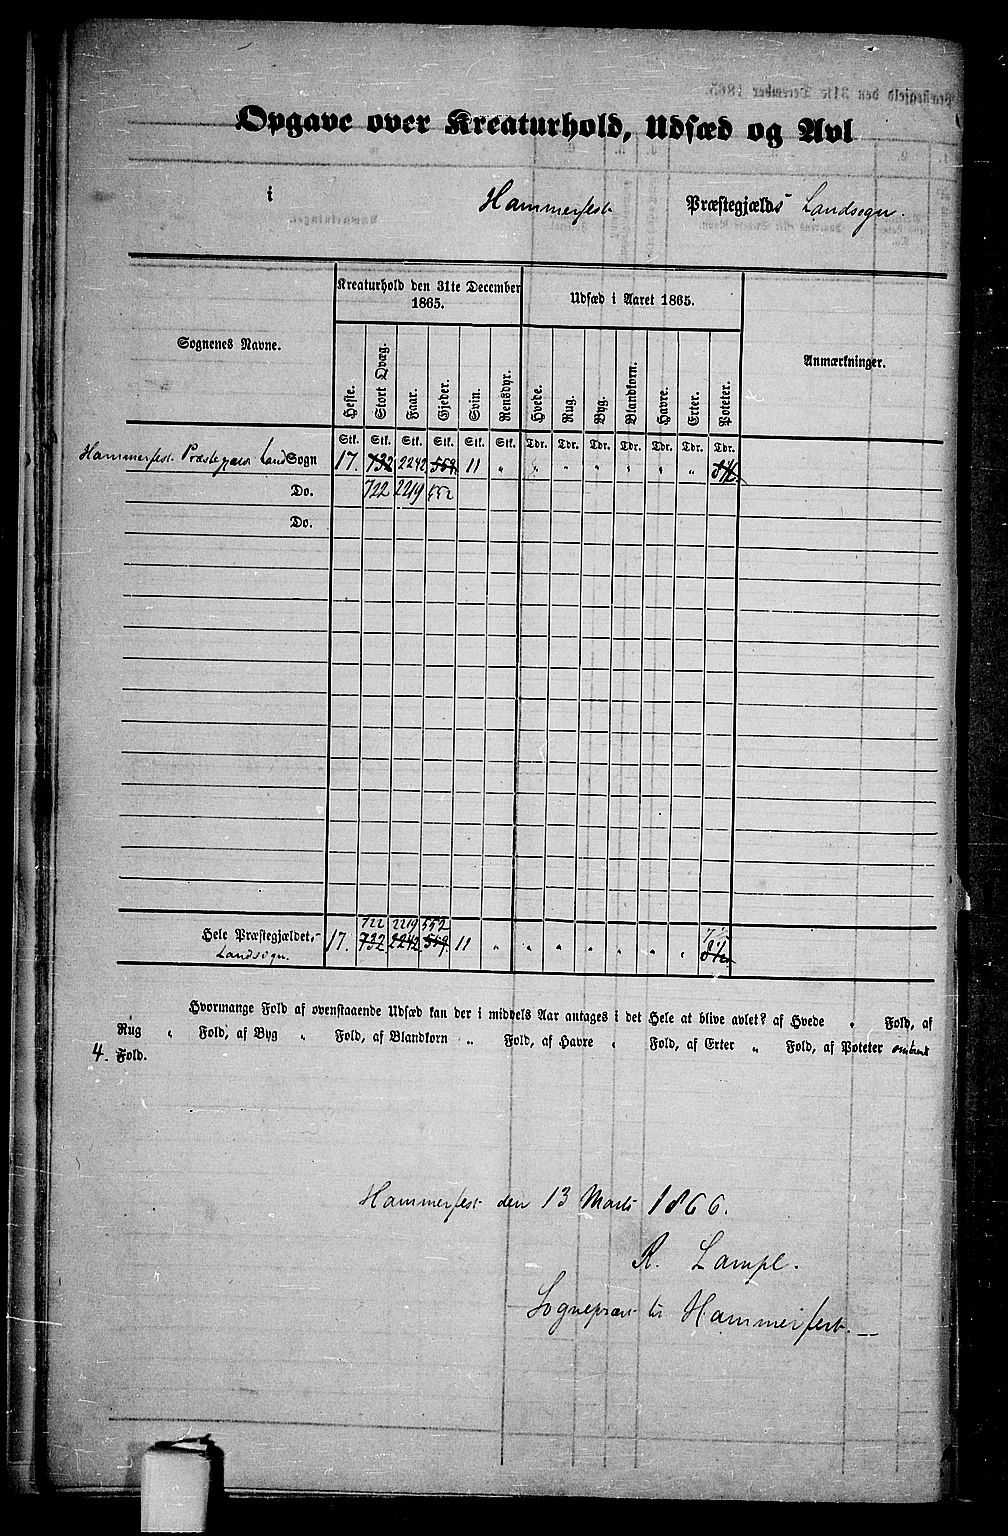 Opgave over Kreaturhold, Udsæd og Avl
i Hammerfest Præstegjælds Landsogn.
Kreaturhold den 31te December 1865.
Udsæd i Aaret 1865.
Sognenes Navne.
Anmærkninger.
Heste. Stort Qvæg. Faar. Gjeder. Svin. Rensdyr. Hvede. Rug. Byg. Blandkorn. Havre. Erter. Poteter.
Stk. Stk. Stk. Stk. Stk. Stk. Tdr. Tdr. Tdr. Tdr. Tdr. Tdr. Tdr.
Hammerfest Præstegjælds Land Sogn 17. 732 2242 559. 11 „ „ „ „ „ „ „
Do. 722 2219 552
Do.
722 2219 552
Hele Præstegjældet, 17. 732. 2242 559. 11 „ „ „ „ „ „ „
Landsogn.
Hvormange Fold af ovenstaaende Udsæd kan der i middels Aar antages i det Hele at blive avlet? af Hvede „ Fold, af
Rug „ Fold, af Byg „ Fold, af Blandkorn „ Fold, af Havre „ Fold, af Erter „ Fold, af Poteter omtrent
4. Fold.
Hammerfest den 13 Marts 1866.
R. Lampe.
Sognepræst til Hammerfest.